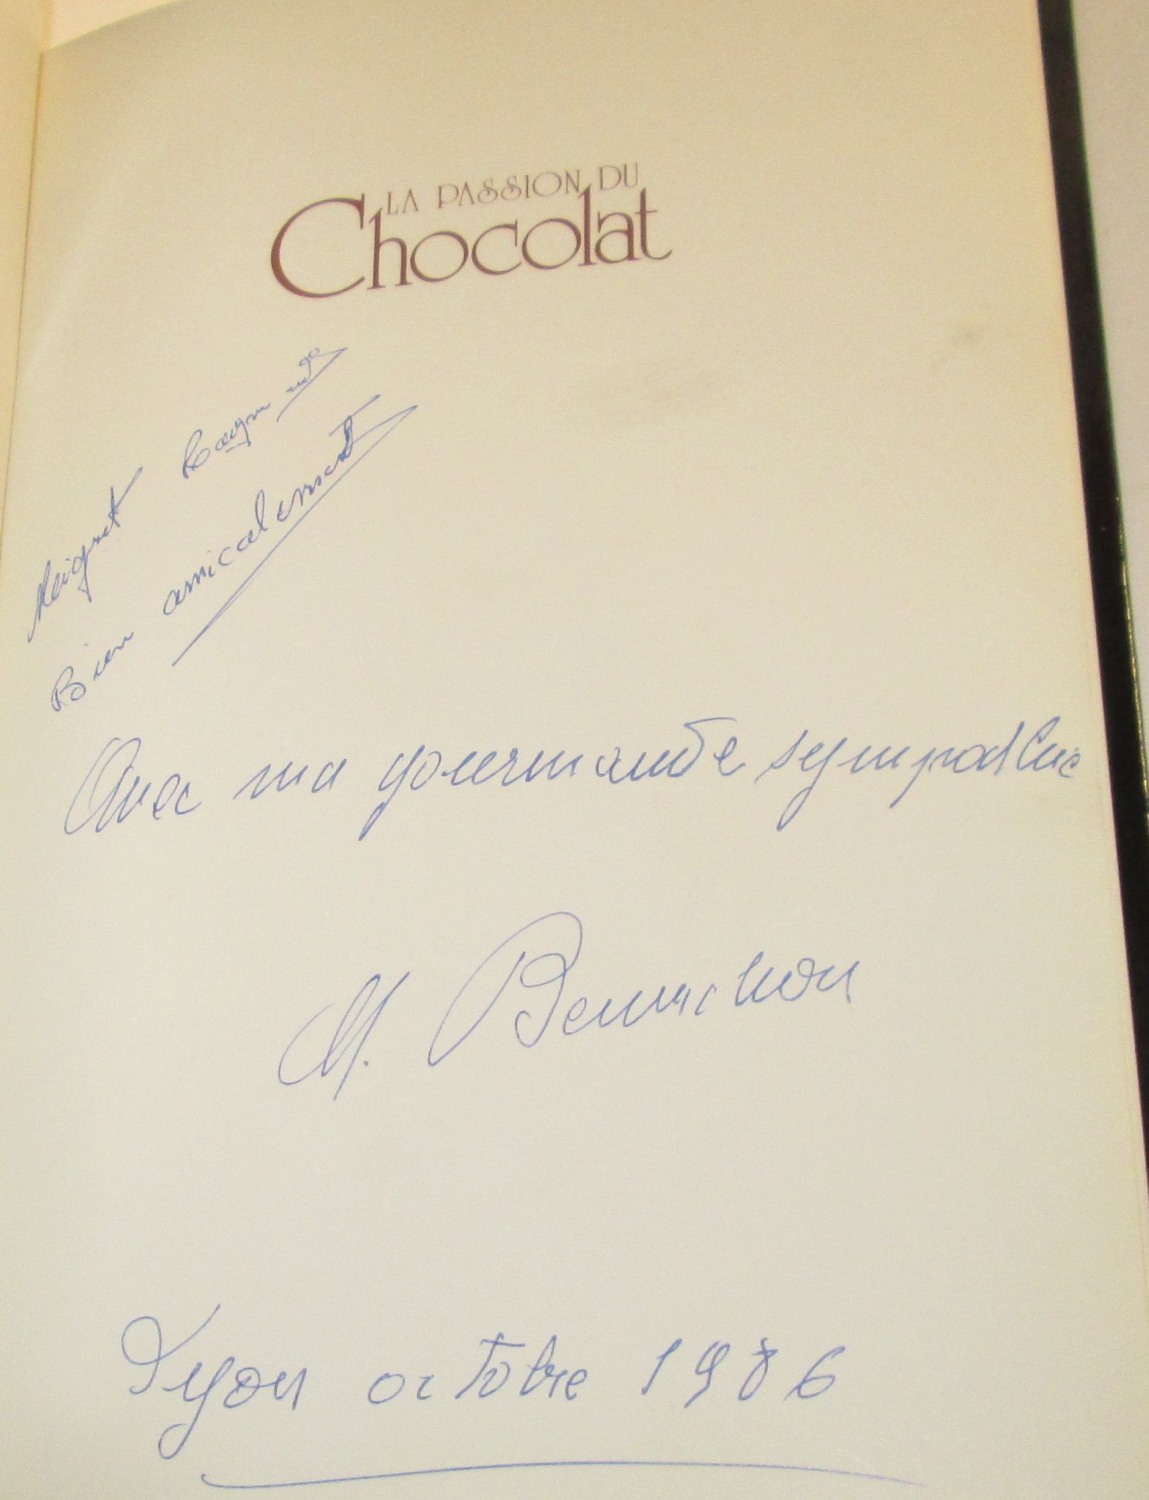 LA PASSION DU
Chocolat
Bien amicalement
Avec ma gourmande sympathie
M. Bernachon
Lyon octobre 1986